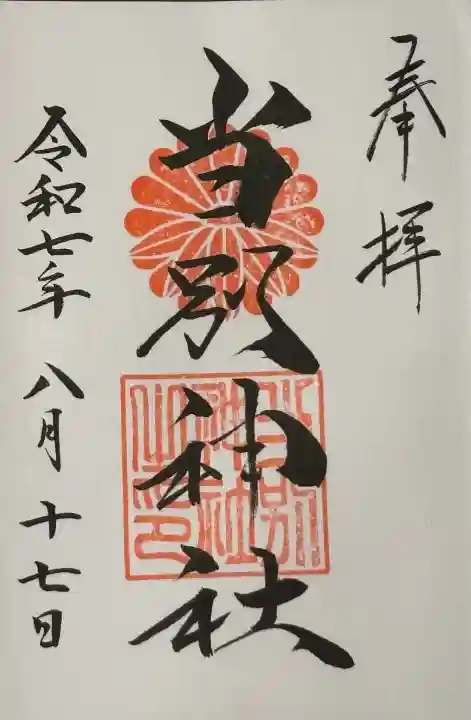 奉拝
当別神社
当別神社之印
令和七年 八月 十七日